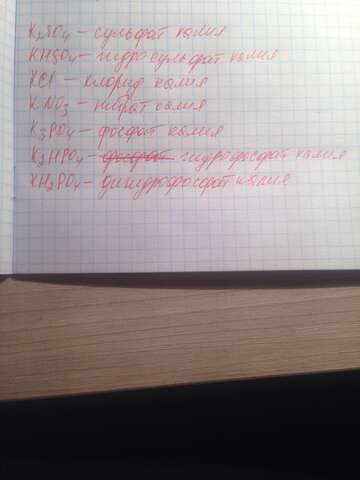 K₂SO₄ – сульфат калия
KHSO₄ – гидросульфат калия
KCl – хлорид калия
KNO₃ – нитрат калия
K₃PO₄ – фосфат калия
K₂HPO₄ – фосфат гидрофосфат калия
KH₂PO₄ – дигидрофосфат калия